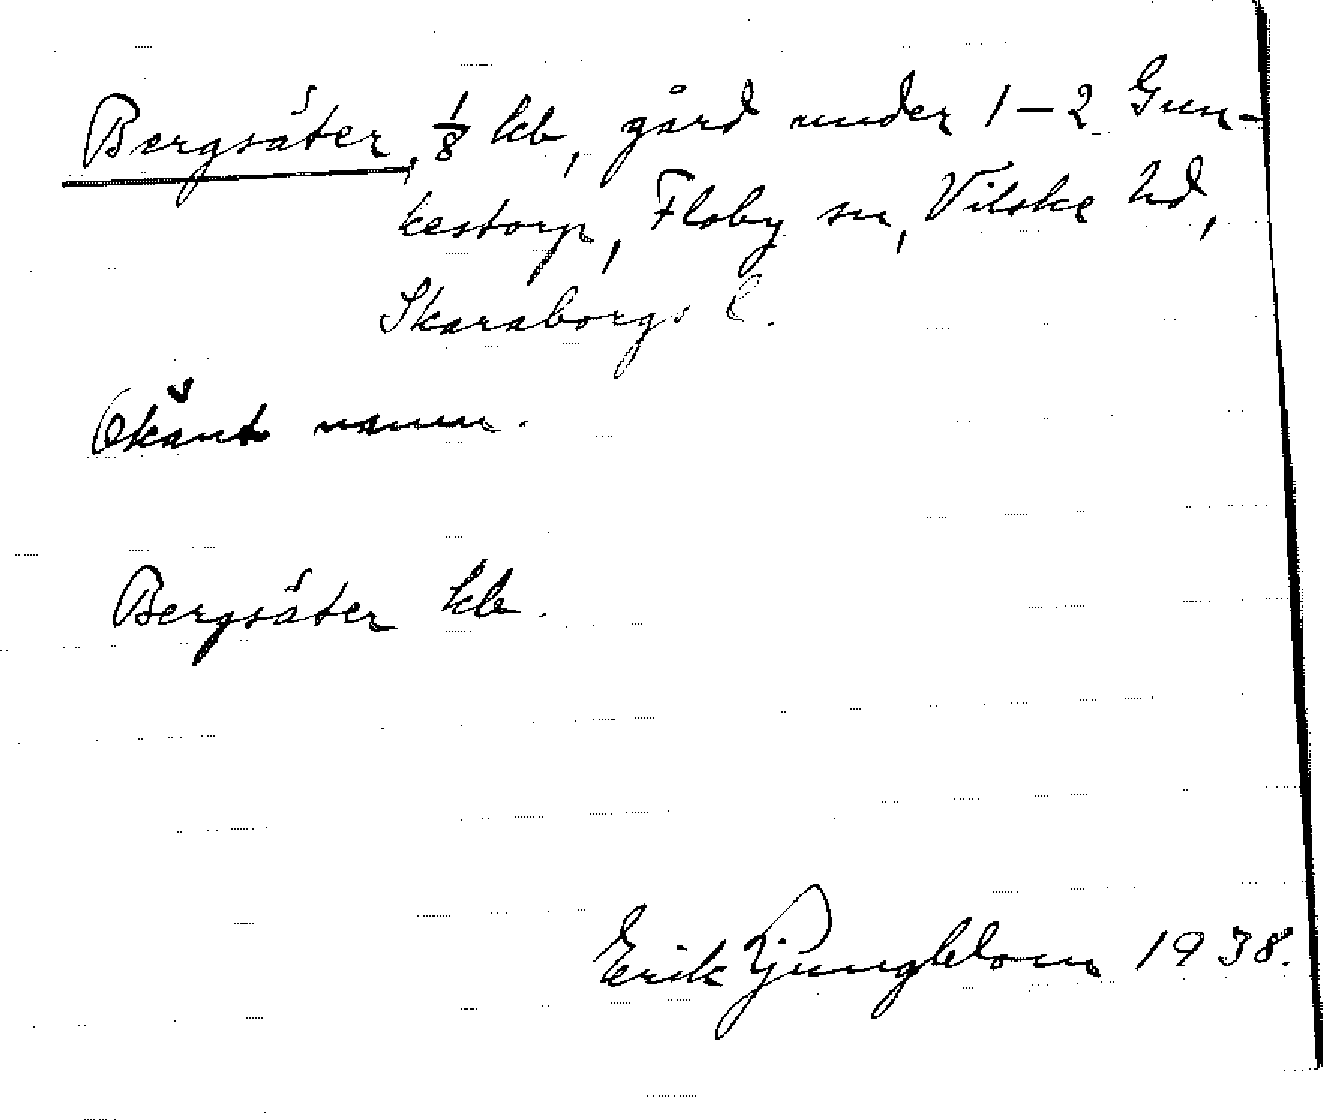 Bergsäter, 1/8 kb, gård under 1-2 Gun-
kestorp, Floby sn, Vilske hd,
Skaraborgs l.
Okänt namn.
Bergsäter kb.
Erik Ljungblom 1938.